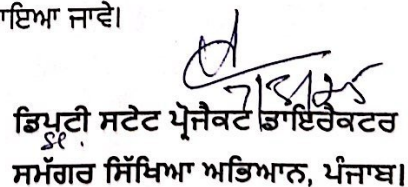 ਾਇਆ ਜਾਵੇ।
ਡਿਪੂਟੀ ਸਟੇਟ ਪ੍ਰੋਜੈਕਟ ਡਾਇਰੈਕਟਰ
ਸਮੱਗਰ ਸਿੱਖਿਆ ਅਭਿਆਨ, ਪੰਜਾਬ।